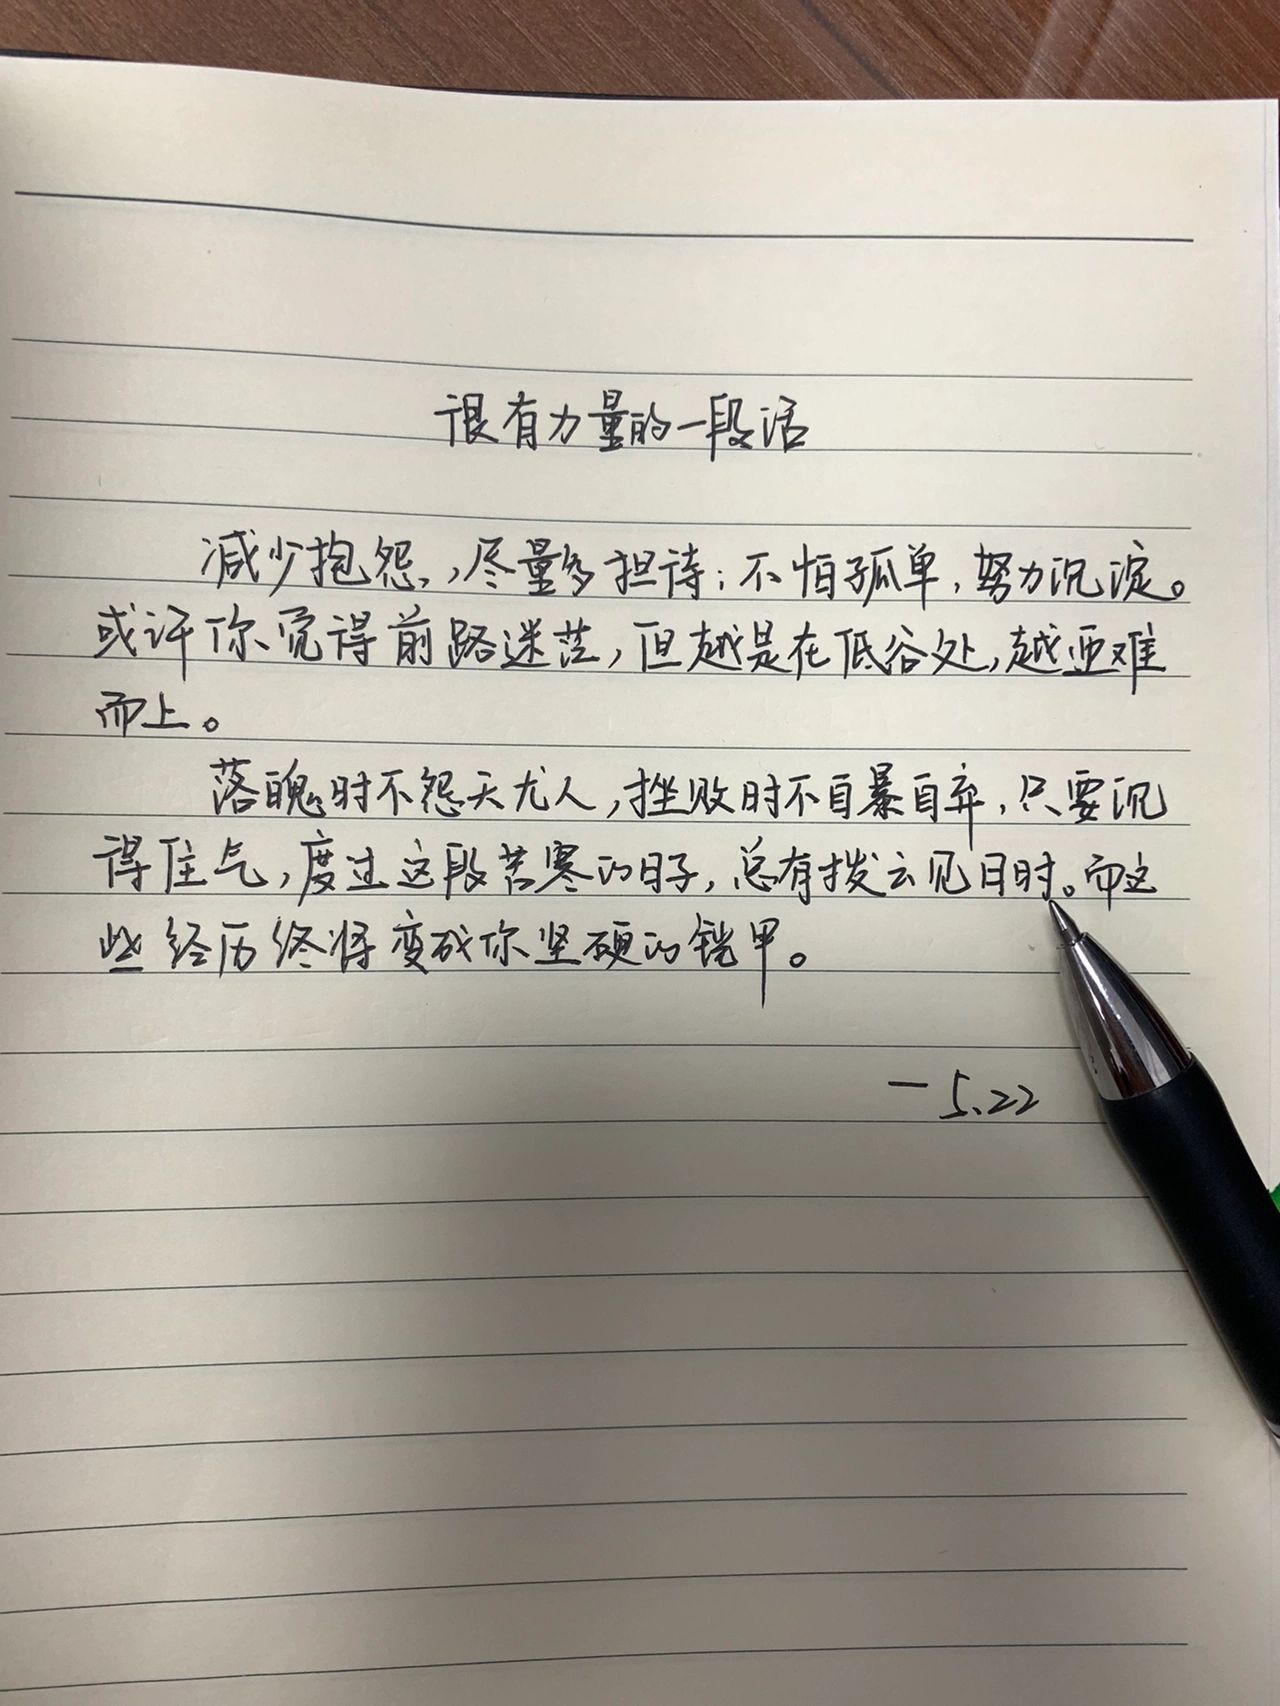 很有力量的一段话
减少抱怨,,尽量多担待;不怕孤单,努力沉淀。
或许你觉得前路迷茫,但越是在低谷处,越要难
而上。
落魄时不怨天尤人,挫败时不自暴自弃,只要沉
得住气,度过这段苦寒的日子,总有拨云见日时。而这
些经历终将变成你坚硬的铠甲。
一 5.22